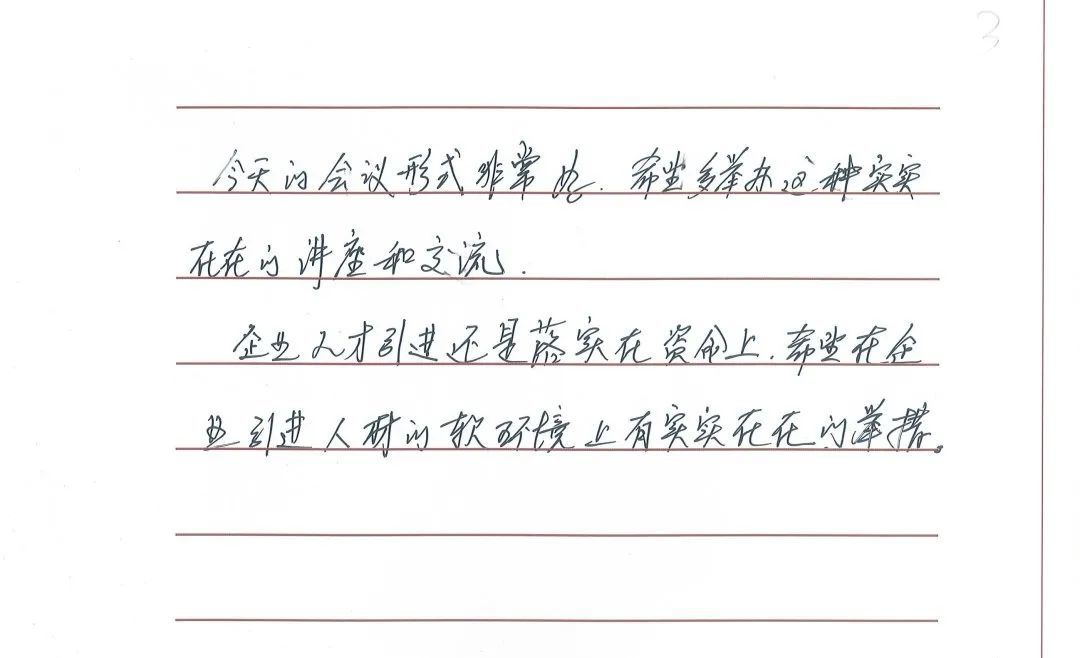 3
今天的会议形式非常好.希望多举办这种实实
在在的讲座和交流.
企业人才引进还是落实在资金上.希望在企
业引进人材的软环境上有实实在在的举措。